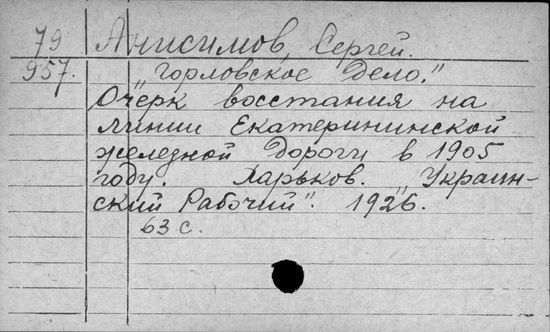 79 Анисимов, Сергей.
957. "Горловское Дело."
Очерк восстания на
линии Екатерининской
железной дороги в 1905
году. Харьков. "Украин-
ский Рабочий". 1926.
63 с.